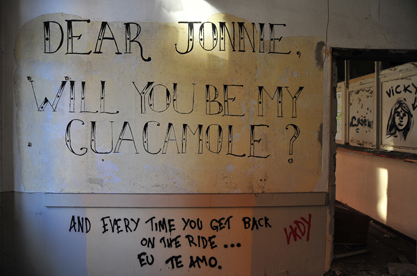 DEAR JONNIE,
WILL YOU BE MY
GUACAMOLE?
AND EVERY TIME YOU GET BACK
ON THE RIDE ...
EU TE AMO.
VICKY